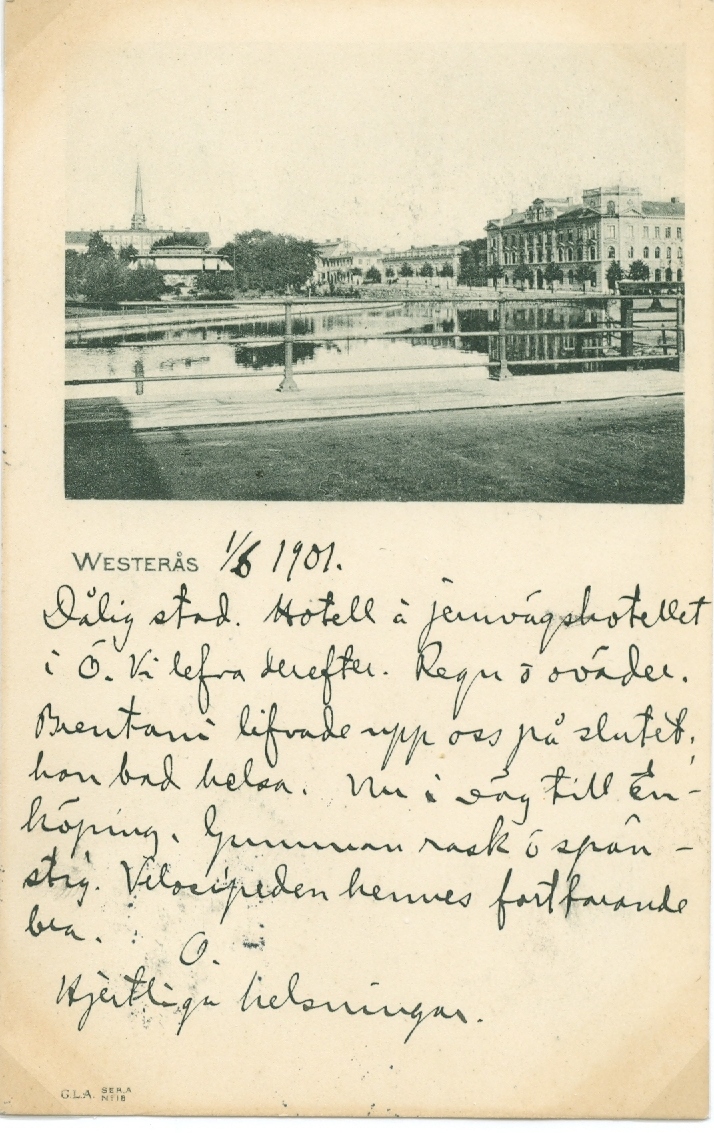 WESTERÅS 1/6 1901.
Dålig stad. Hotell à jernvägshotellet
i Ö. Vi lefva derefter. Regn o oväder.
Brentani lifvade upp oss på slutet,
han bad helsa. Nu i dag till En-
köping. Gumman rask o spän-
stig. Velocipeden hennes fortfarande
bra. O.
Hjertliga helsningar.
G.L.A. SER.A
N:18